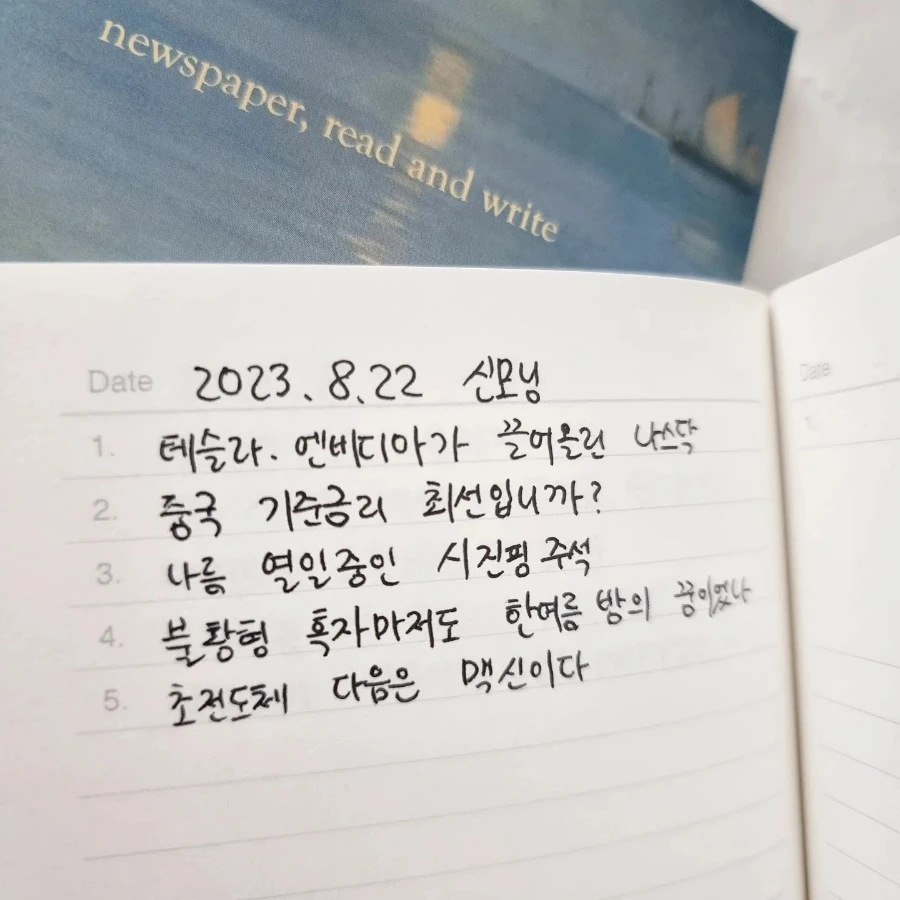 newspaper, read and write
Date 2023.8.22 신모닝
1. 테슬라. 엔비디아가 끌어올린 나스닥
2. 중국 기준금리 최선입니까?
3. 나름 열일중인 시진핑 주석
4. 불황형 흑자마저도 한여름 밤의 꿈이었나
5. 초전도체 다음은 맥신이다
Date